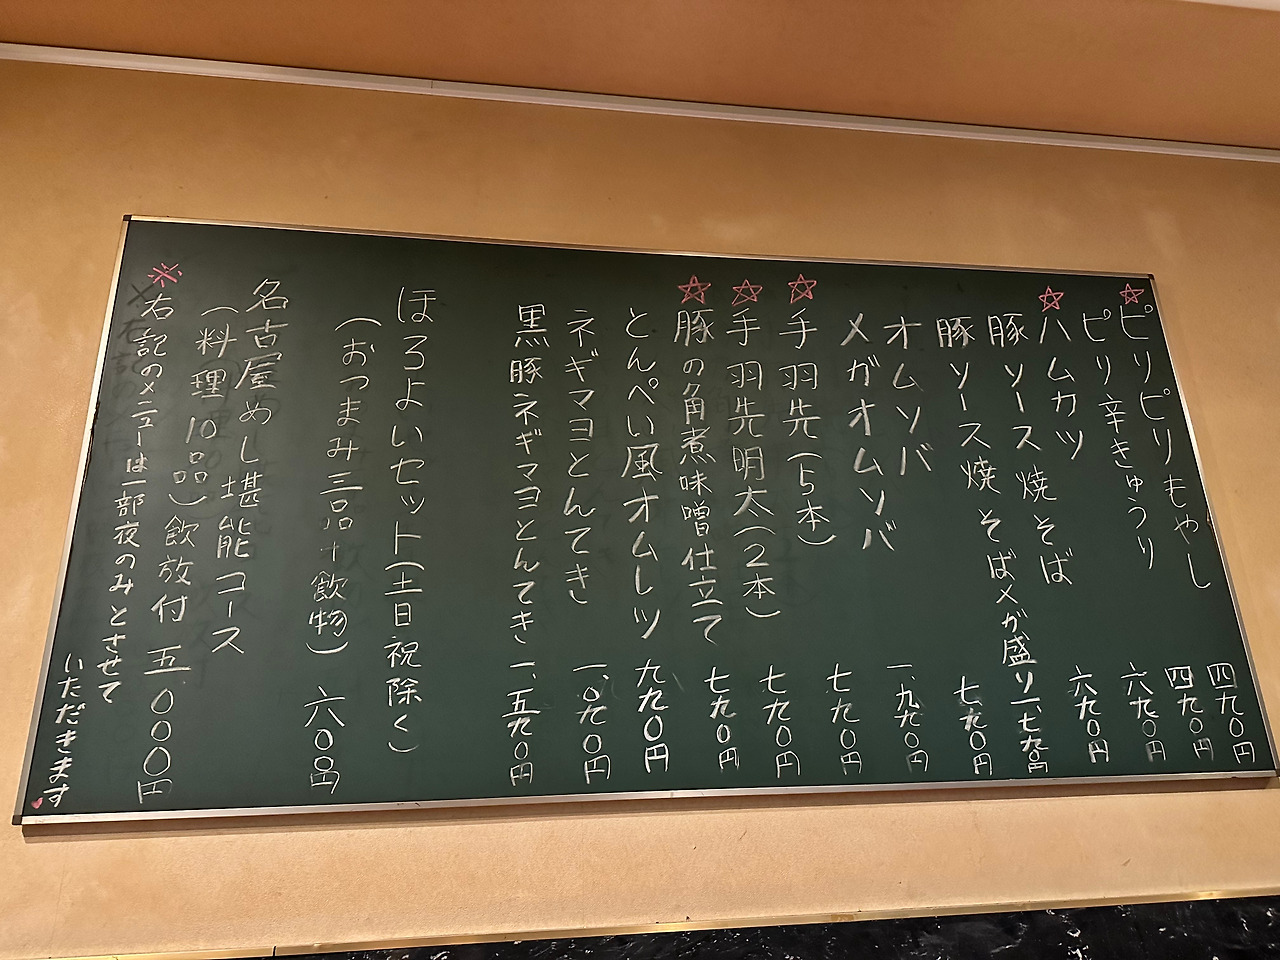 ☆ピリピリもやし 四九〇円
ピリ辛きゅうり 四九〇円
☆ハムカツ 六九〇円
豚ソース焼そば 六九〇円
豚ソース焼そばメガ盛り 一、七九〇円
オムソバ 七九〇円
メガオムソバ 一、九九〇円
☆手羽先(5本) 七九〇円
☆手羽先明太(2本) 七九〇円
☆豚の角煮味噌仕立て 七九〇円
とんぺい風オムレツ 九九〇円
ネギマヨとんてき 一、〇九〇円
黒豚ネギマヨとんてき 一、五九〇円
ほろよいセット(土日祝除く)
(おつまみ三品+飲物)
名古屋めし堪能コース
(料理10品)飲放付 五、〇〇〇円
※右記のメニューは一部夜のみとさせて
いただきます♥